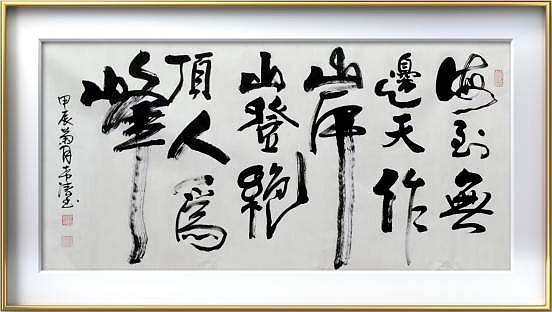 海到無
邊天作
岸
山登絶
頂人為
峰
甲辰菊月韋清書